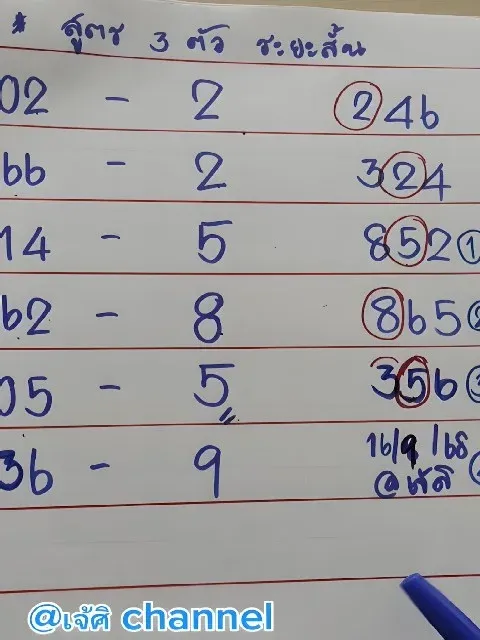 * สูตร 3 ตัว ระยะสั้น
02 - 2 246
66 - 2 324
14 - 5 852 1
62 - 8 865 2
05 - 5 356 3
36 - 9 16/9/68
@เจ้ศิ
@เจ้ศิ channel